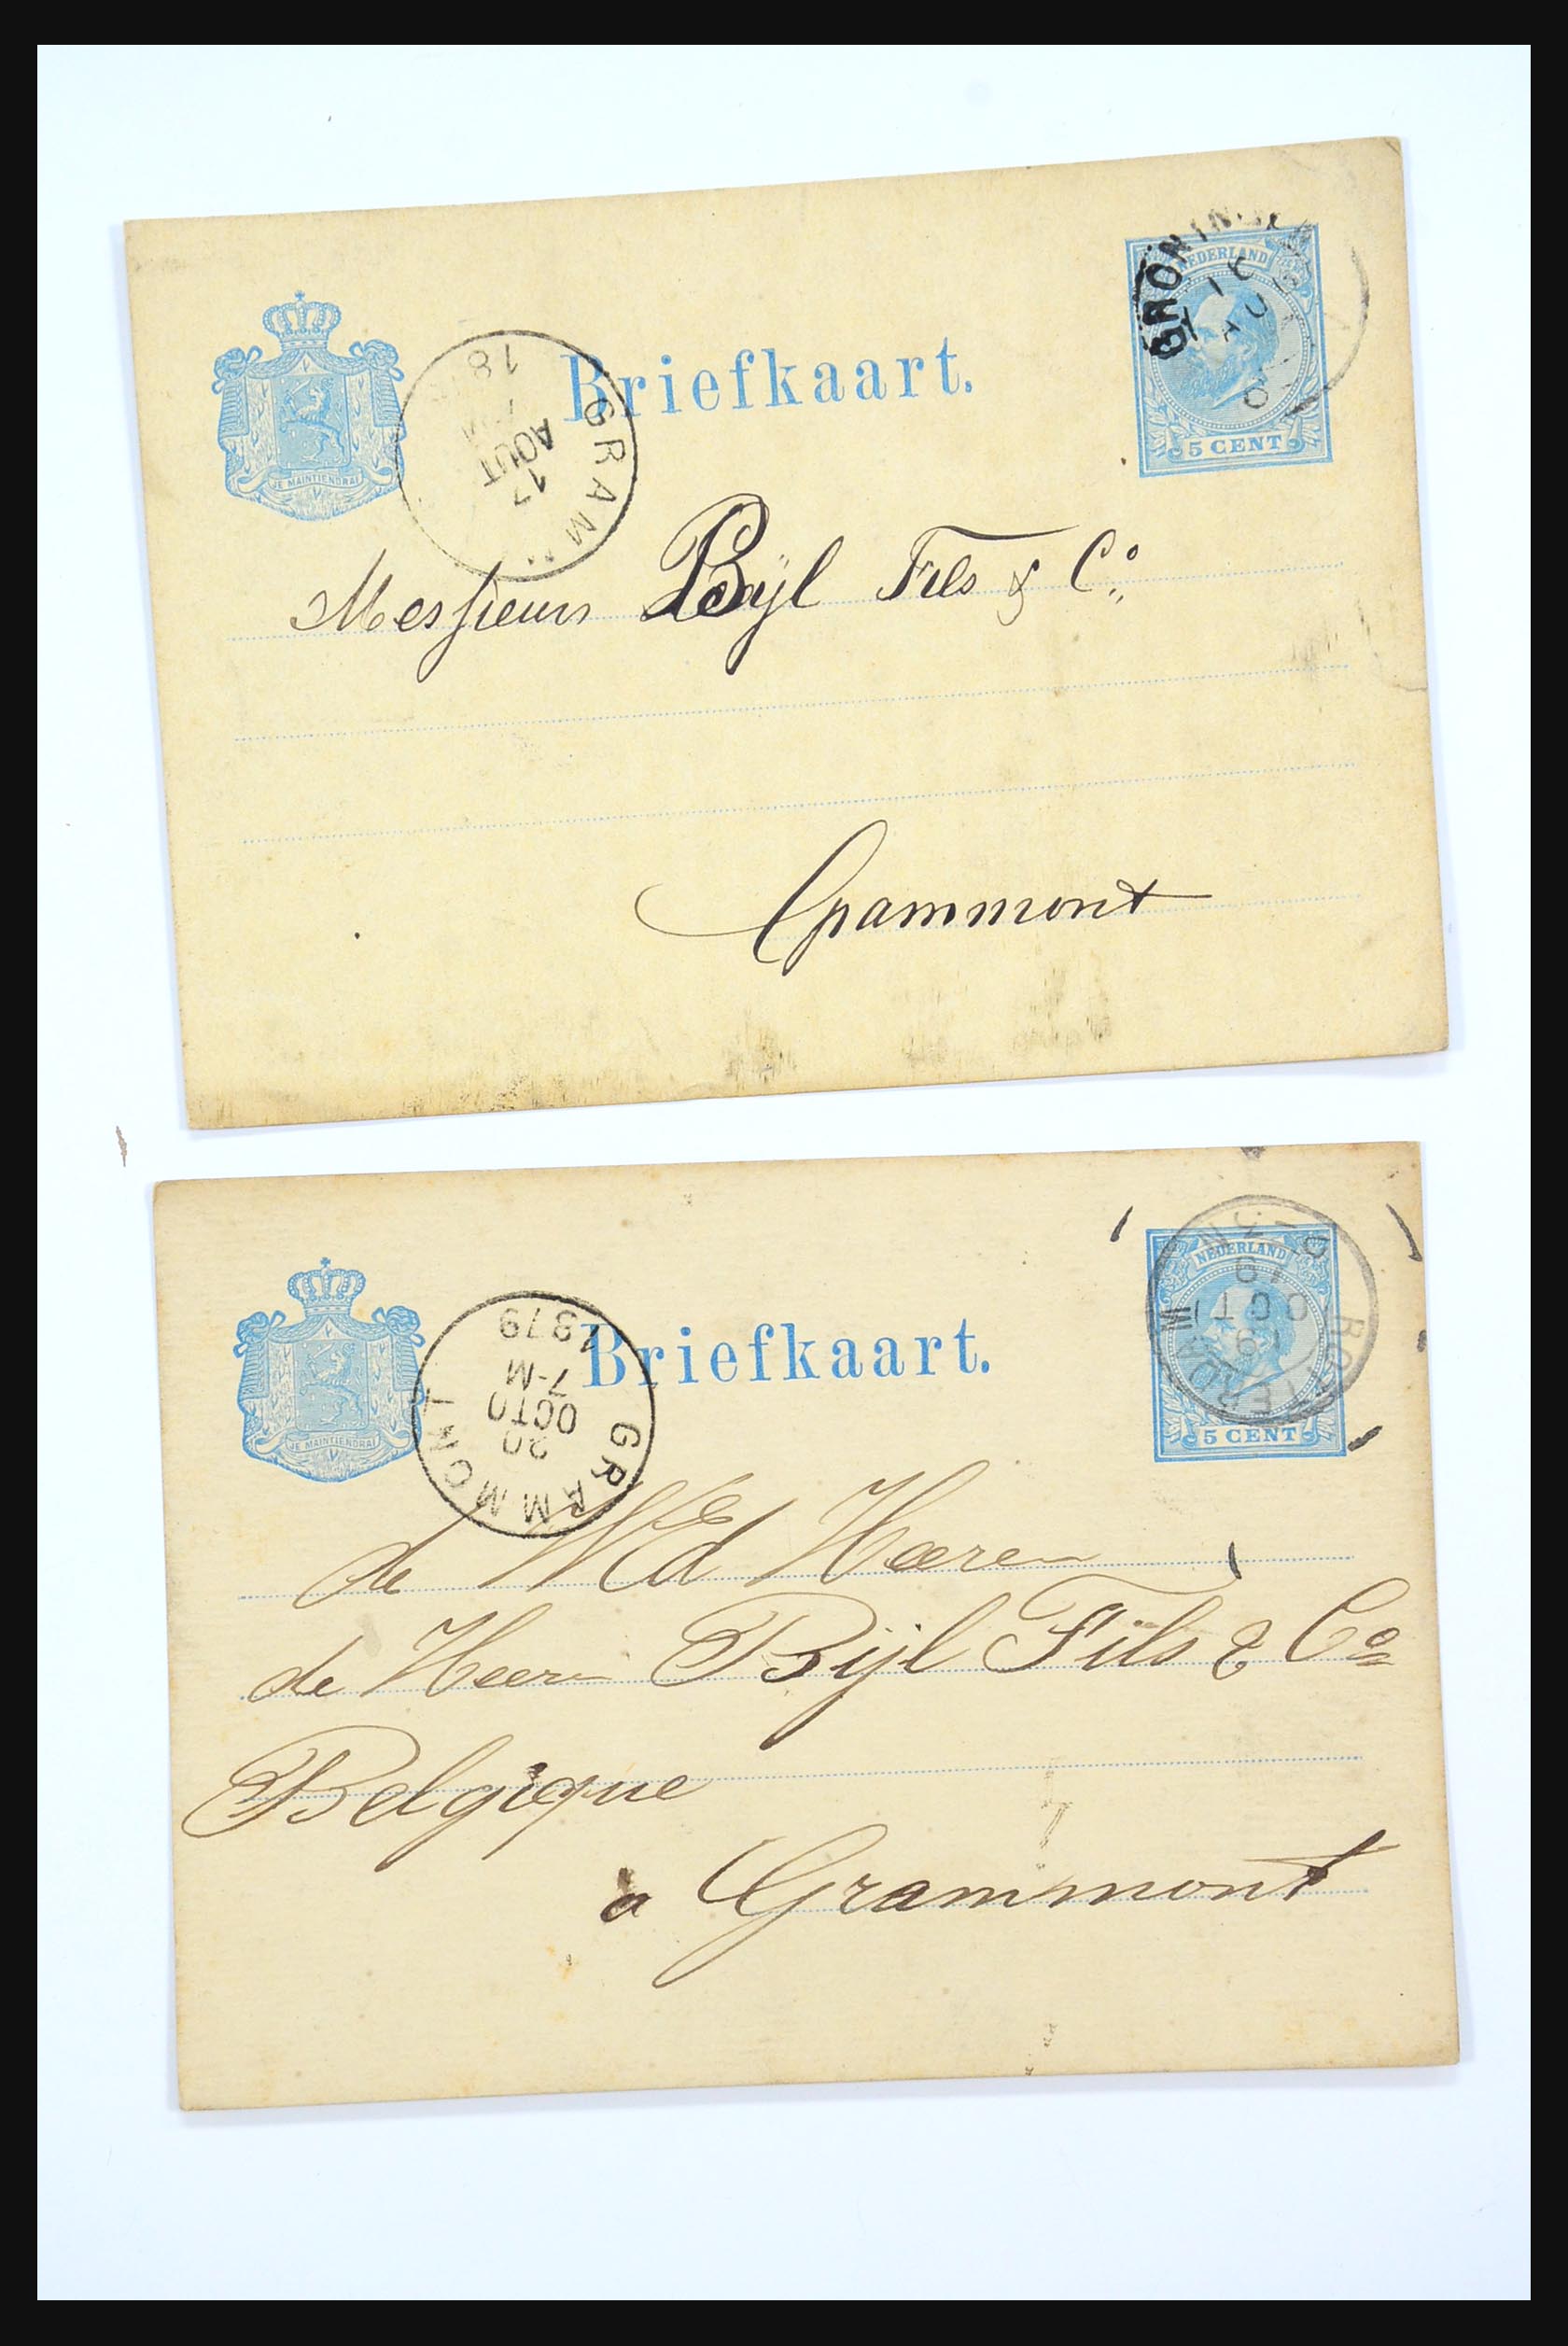 Briefkaart.
NEDERLAND
5 CENT
JE MAINTIENDRAI
GRAM
AOUT
18
Messieurs Bijl Fils & Co.
Grammont
Briefkaart.
NEDERLAND
5 CENT
JE MAINTIENDRAI
ROTTERDAM
19
OCT
79
GRAMMONT
20
OCTO
7-M
1879
de WEd Heeren
de Heeren Bijl Fils & Co
Belgique
a Grammont